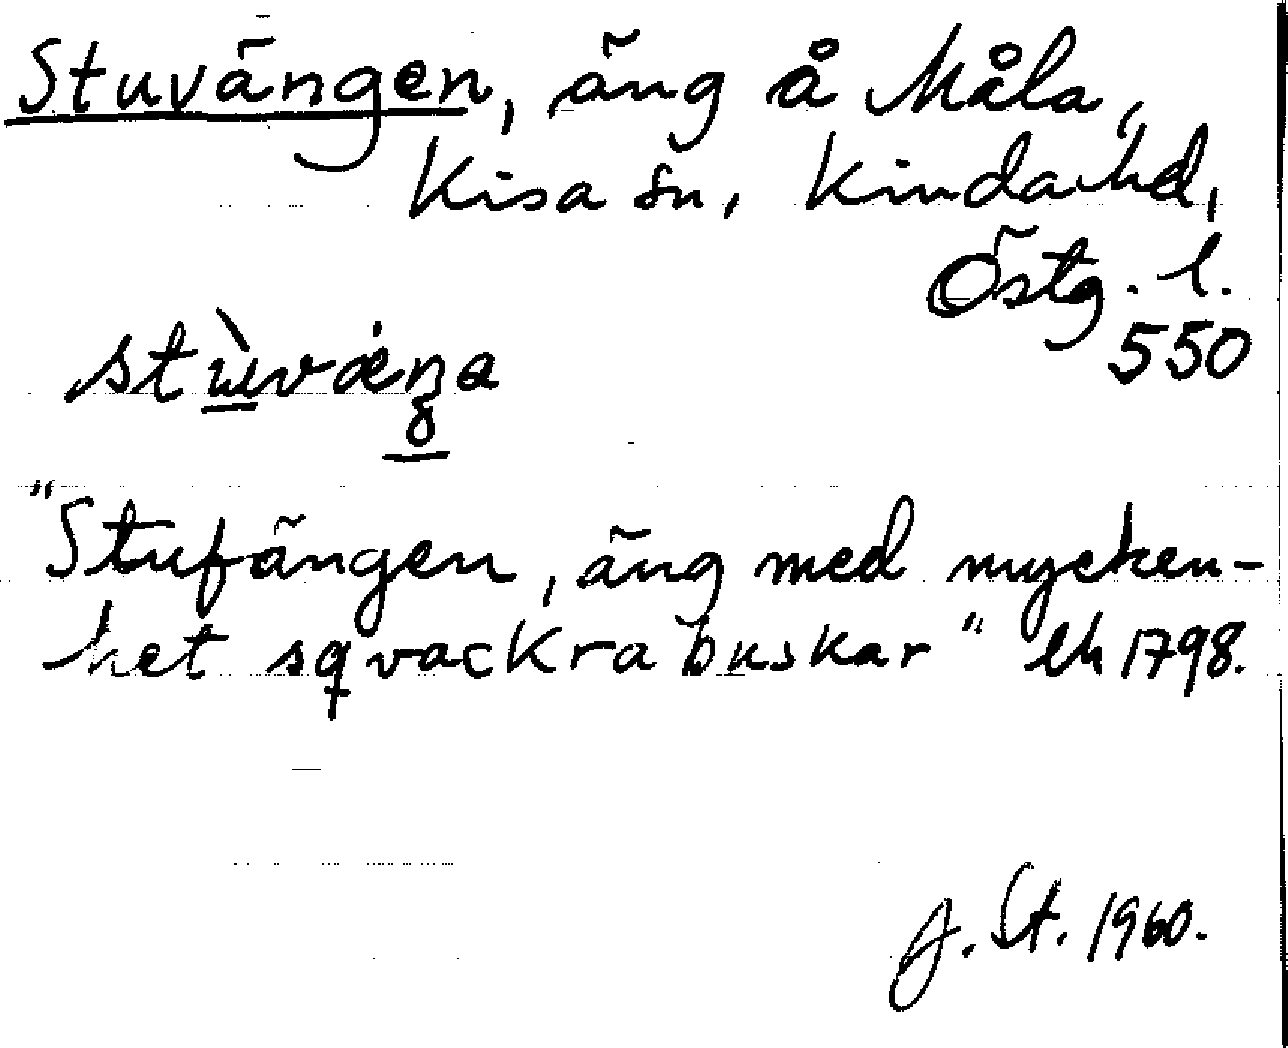 Stuvängen, äng å Måla,
Kisa sn, Kinda hd,
Östg. l.
550
stùvæŋa
"Stufängen, äng med mycken-
het sqvackra buskar" lh 1798.
J. St. 1960.